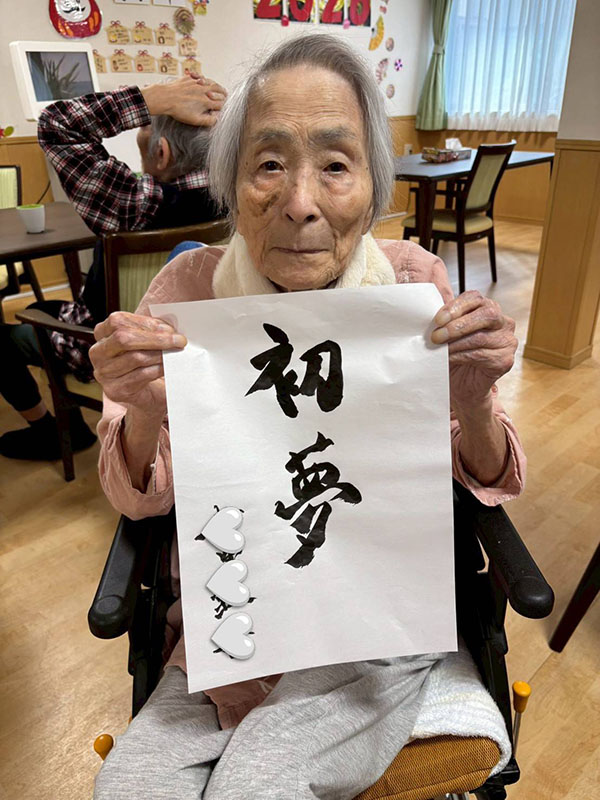 初
夢
2026